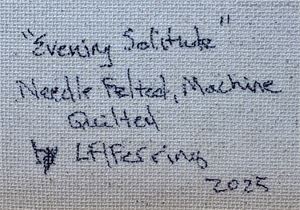 "Evening Solitude"
Needle Felted, Machine
Quilted
by
2025